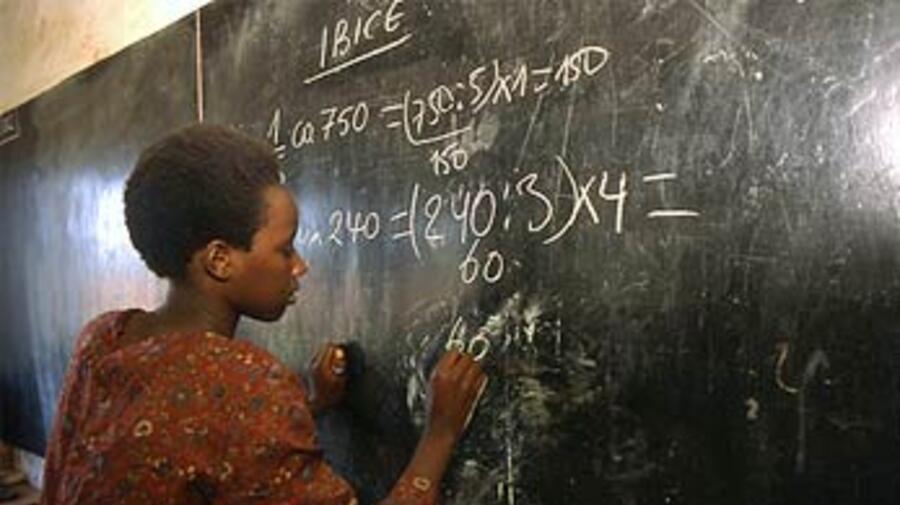 IBICE
1 ca 750 = (750:5)x1 = 150
150
240 = (240:3)x4 =
60
60